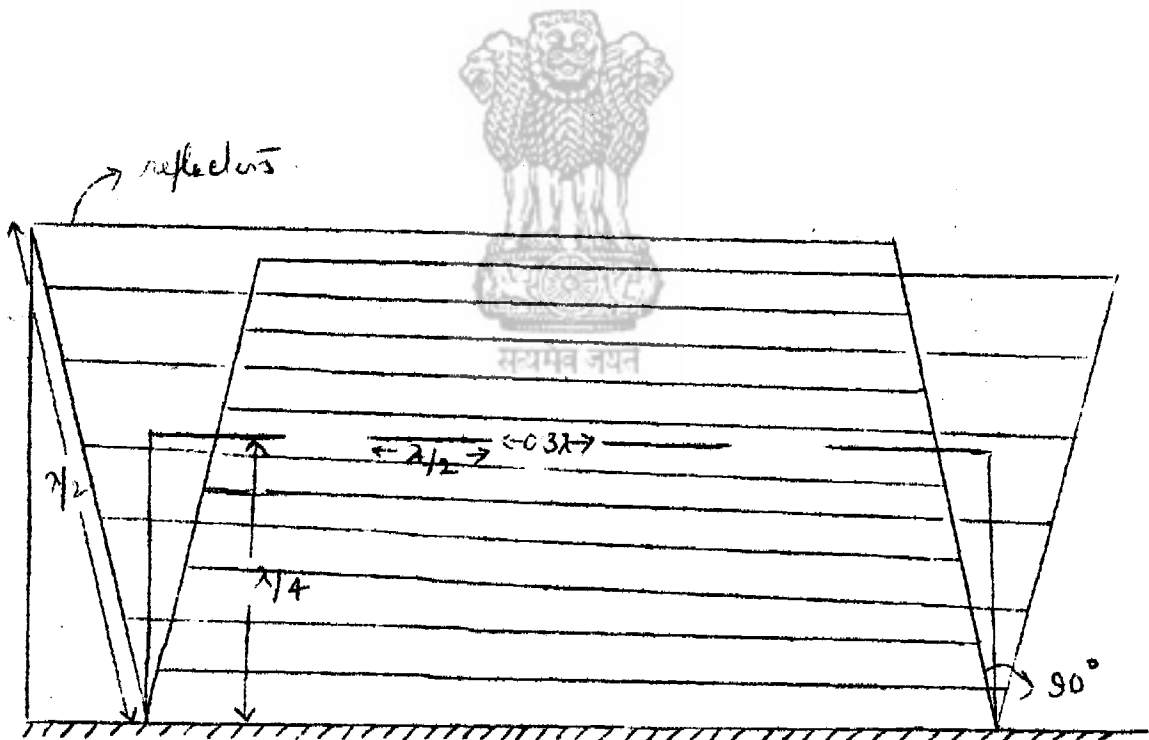 reflectors
सत्यमेव जयते
λ/2
0.3λ
λ/2
λ/4
90°